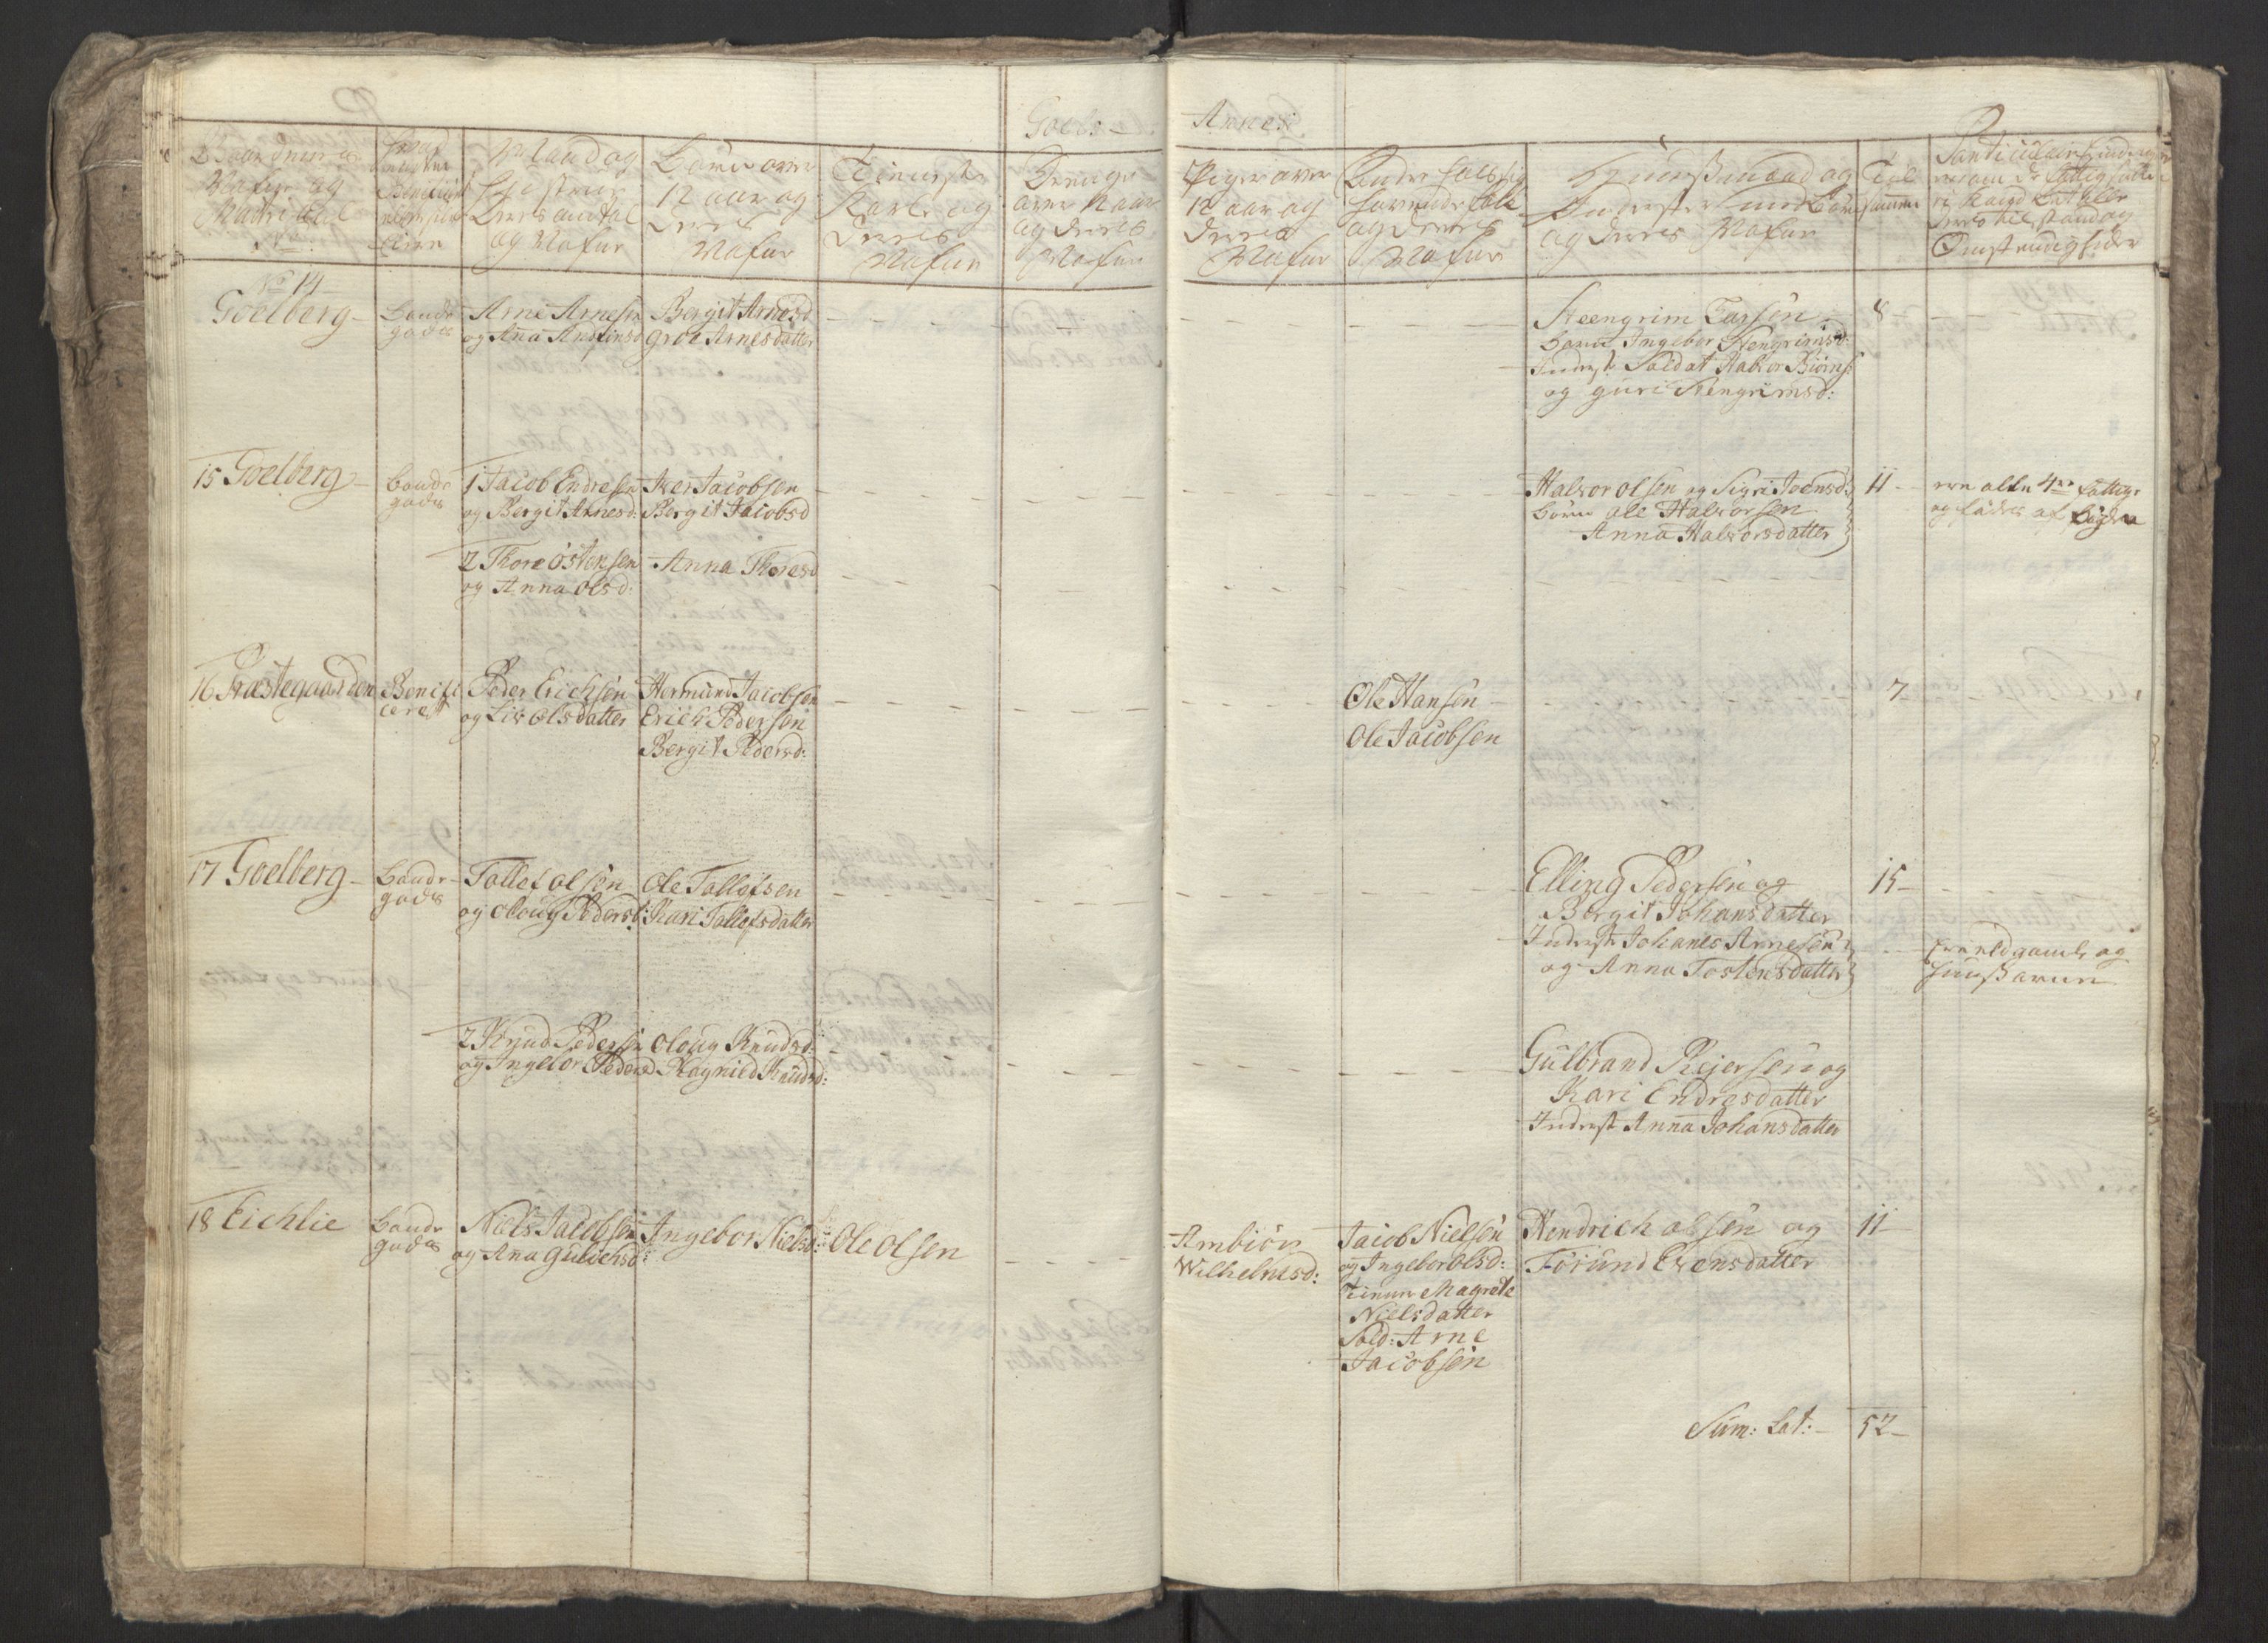 Goels - Annex
Gaardenes Nafne og Matricul No:
Mand og Hustrue Deres antal og Nafne
Børn over 12 aar og Deres Nafne
Tieneste Karle og Deres Nafne
Drenge over 12 aar og Deres Nafne
Piger over 12 aar og Deres Nafne
Andre Folk og Deres Nafne
Huusmænd og Inderster med Børn og Deres Nafne
Tal
Omstændigheder
No 14
Goelberg -
Bonde
gods
Arne Arnesen
og Anna Anfinsd
Bergit Arnesd
Groe Arnesdatter
Steengrim Larsen
Barn Ingebor Stengrimsd:
Inderst Soldat Halvor Biørns
og Guri Stengrimsd:
8
15 Goelberg -
Bonde
gods
1 Jacob Endresen
og Bergit Arnesd:
Iver Jacobsen
Bergit Jacobsd
Halvor Olsen og Sigri Joensd:
børn Ole Halvorsen
Anna Halvorsdatter
11
ere alle 4re fattige
og fødes af Bygden
2 Thore Østensen
og Anna Olsd:
Anna Thoresd
16 Præstegaarden
Benifi
ceret
Peder Erichsen
og Liv Olsdatter
Hermund Jacobsen
Erich Pedersen
Bergit Pedersd:
Ole Hansen
Ole Jacobsen
7
17 Goelberg -
Bonde
gods
Tollef Olsen
og Oloug Pedersd:
Ole Tollefsen
Kari Tollefsdatter
Elling Pedersen og
Bergit Johansdatter
Inderst Johanes Arnesen
og Anna Tostensdatter
15
ere eldgamle og
2 Knud Pedersen
og Ingebor Pedersd
Oloug Knudsd:
Ragnild Knudsd:
Gulbrand Rejersen og
Kari Endresdatter
Inderst Anna Johansdatter
18 Eichlie
Bonde
gods
Niels Jacobsen
og Ana Gulichsd:
Ingebor Nielsd:
Ole Olsen
Ambiør
Wilhelmsd:
Jacob Nielsen
og Ingebor Olsd:
Magrete
Nielsdatter
Sold: Arne
Jacobsen
Hendrich Olsen og
Torund Evensdatter
11
Sum: Lat: - 52